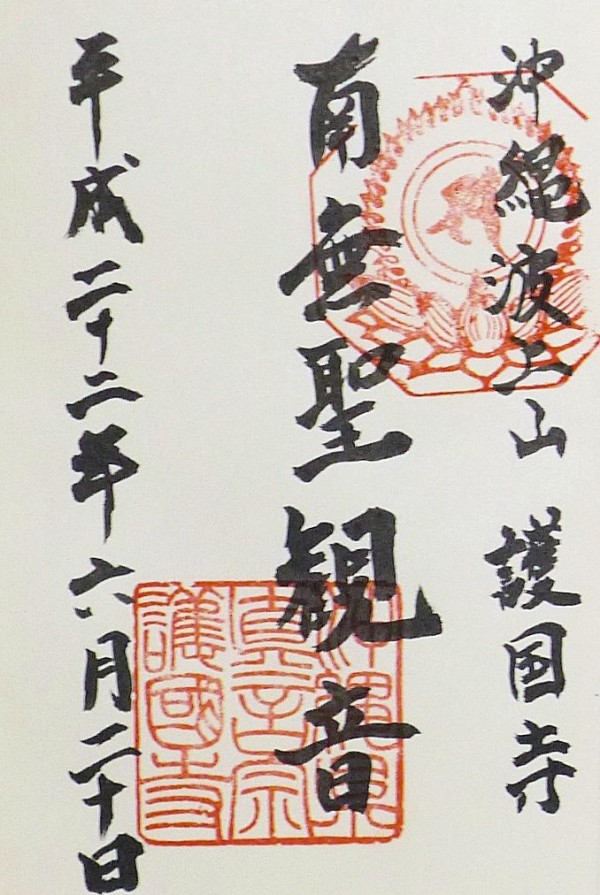 沖縄波上山 護国寺
南無聖観音
平成二十二年六月二十日
真言宗
護國寺